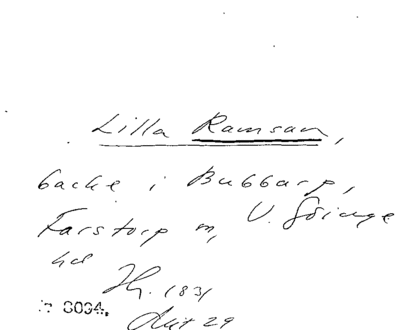 Lilla Ramsan,
backe i Bubbarp,
Farstorp sn, V. Göinge
hd
Jb. 1831
Akt 29